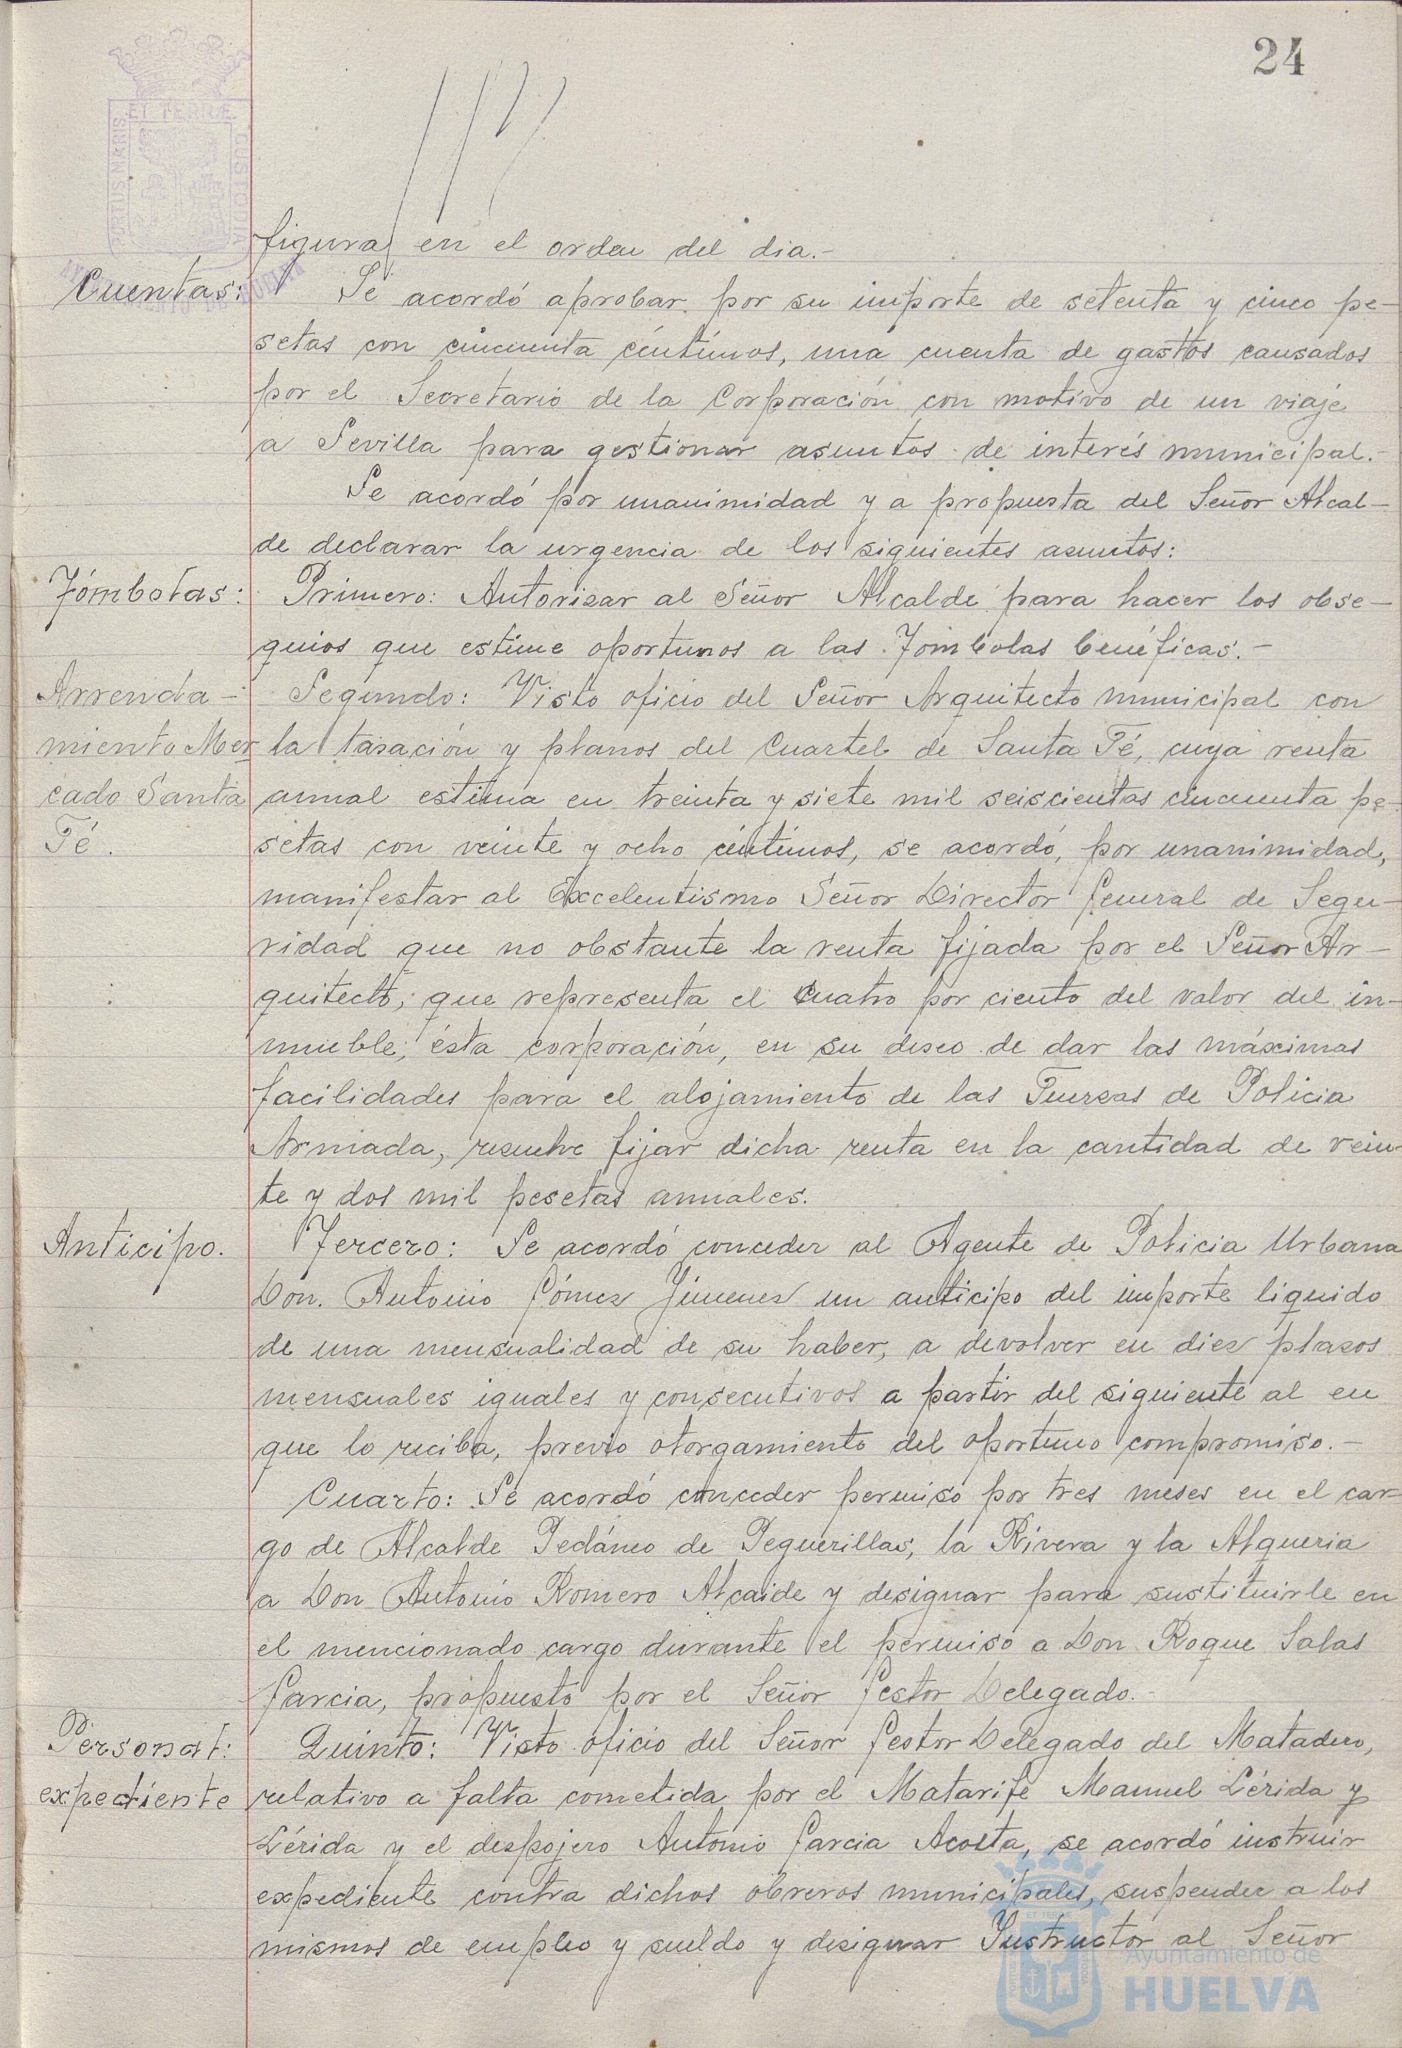 24
ET TERRÆ
PORTUS MARIS
CUSTODIA
figura en el orden del dia.-
Cuentas:
Se acordó aprobar por su importe de setenta y cinco pe-
setas con cincuenta céntimos, una cuenta de gastos causados
por el Secretario de la Corporación con motivo de un viaje
a Sevilla para gestionar asuntos de interés municipal.-
Se acordó por unanimidad y a propuesta del Señor Alcal-
de declarar la urgencia de los siguientes asuntos:
Tómbolas:
Primero: Autorizar al Señor Alcalde para hacer los obse-
quios que estime oportunos a las Tómbolas benéficas.-
Arrenda-
Segundo: Visto oficio del Señor Arquitecto municipal con
miento Mer
la tasación y planos del Cuartel de Santa Fé, cuya renta
cado Santa
anual estima en treinta y siete mil seiscientas cincuenta pe-
Fé.
setas con veinte y ocho céntimos, se acordó, por unanimidad,
manifestar al Excelentismo Señor Director General de Segu-
ridad que no obstante la renta fijada por el Señor Ar-
quitecto, que representa el cuatro por ciento del valor del in-
mueble, ésta corporación, en su deseo de dar las máximas
facilidades para el alojamiento de las Fuerzas de Policia
Armada, resuelve fijar dicha renta en la cantidad de vein-
te y dos mil pesetas anuales.
Anticipo.
Tercero: Se acordó conceder al Agente de Policia Urbana
Don. Antonio Gómez Jimenez un anticipo del importe liquido
de una mensualidad de su haber, a devolver en diez plazos
mensuales iguales y consecutivos a partir del siguiente al en
que lo reciba, previo otorgamiento del oportuno compromiso.-
Cuarto: Se acordó conceder permiso por tres meses en el car-
go de Alcalde Pedáneo de Peguerillas, la Rivera y la Alqueria
a Don Antonio Romero Alcaide y designar para sustituirle en
el mencionado cargo durante el permiso a Don Roque Salas
Garcia, propuesto por el Señor Gestor Delegado.-
Personal:
Quinto: Visto oficio del Señor Gestor Delegado del Matadero,
expediente
relativo a falta cometida por el Matarife Manuel Lérida y
Lérida y el despojero Antonio Garcia Acosta, se acordó instruir
expediente contra dichos obreros municipales, suspender a los
mismos de empleo y sueldo y designar Instructor al Señor
Ayuntamiento de
HUELVA